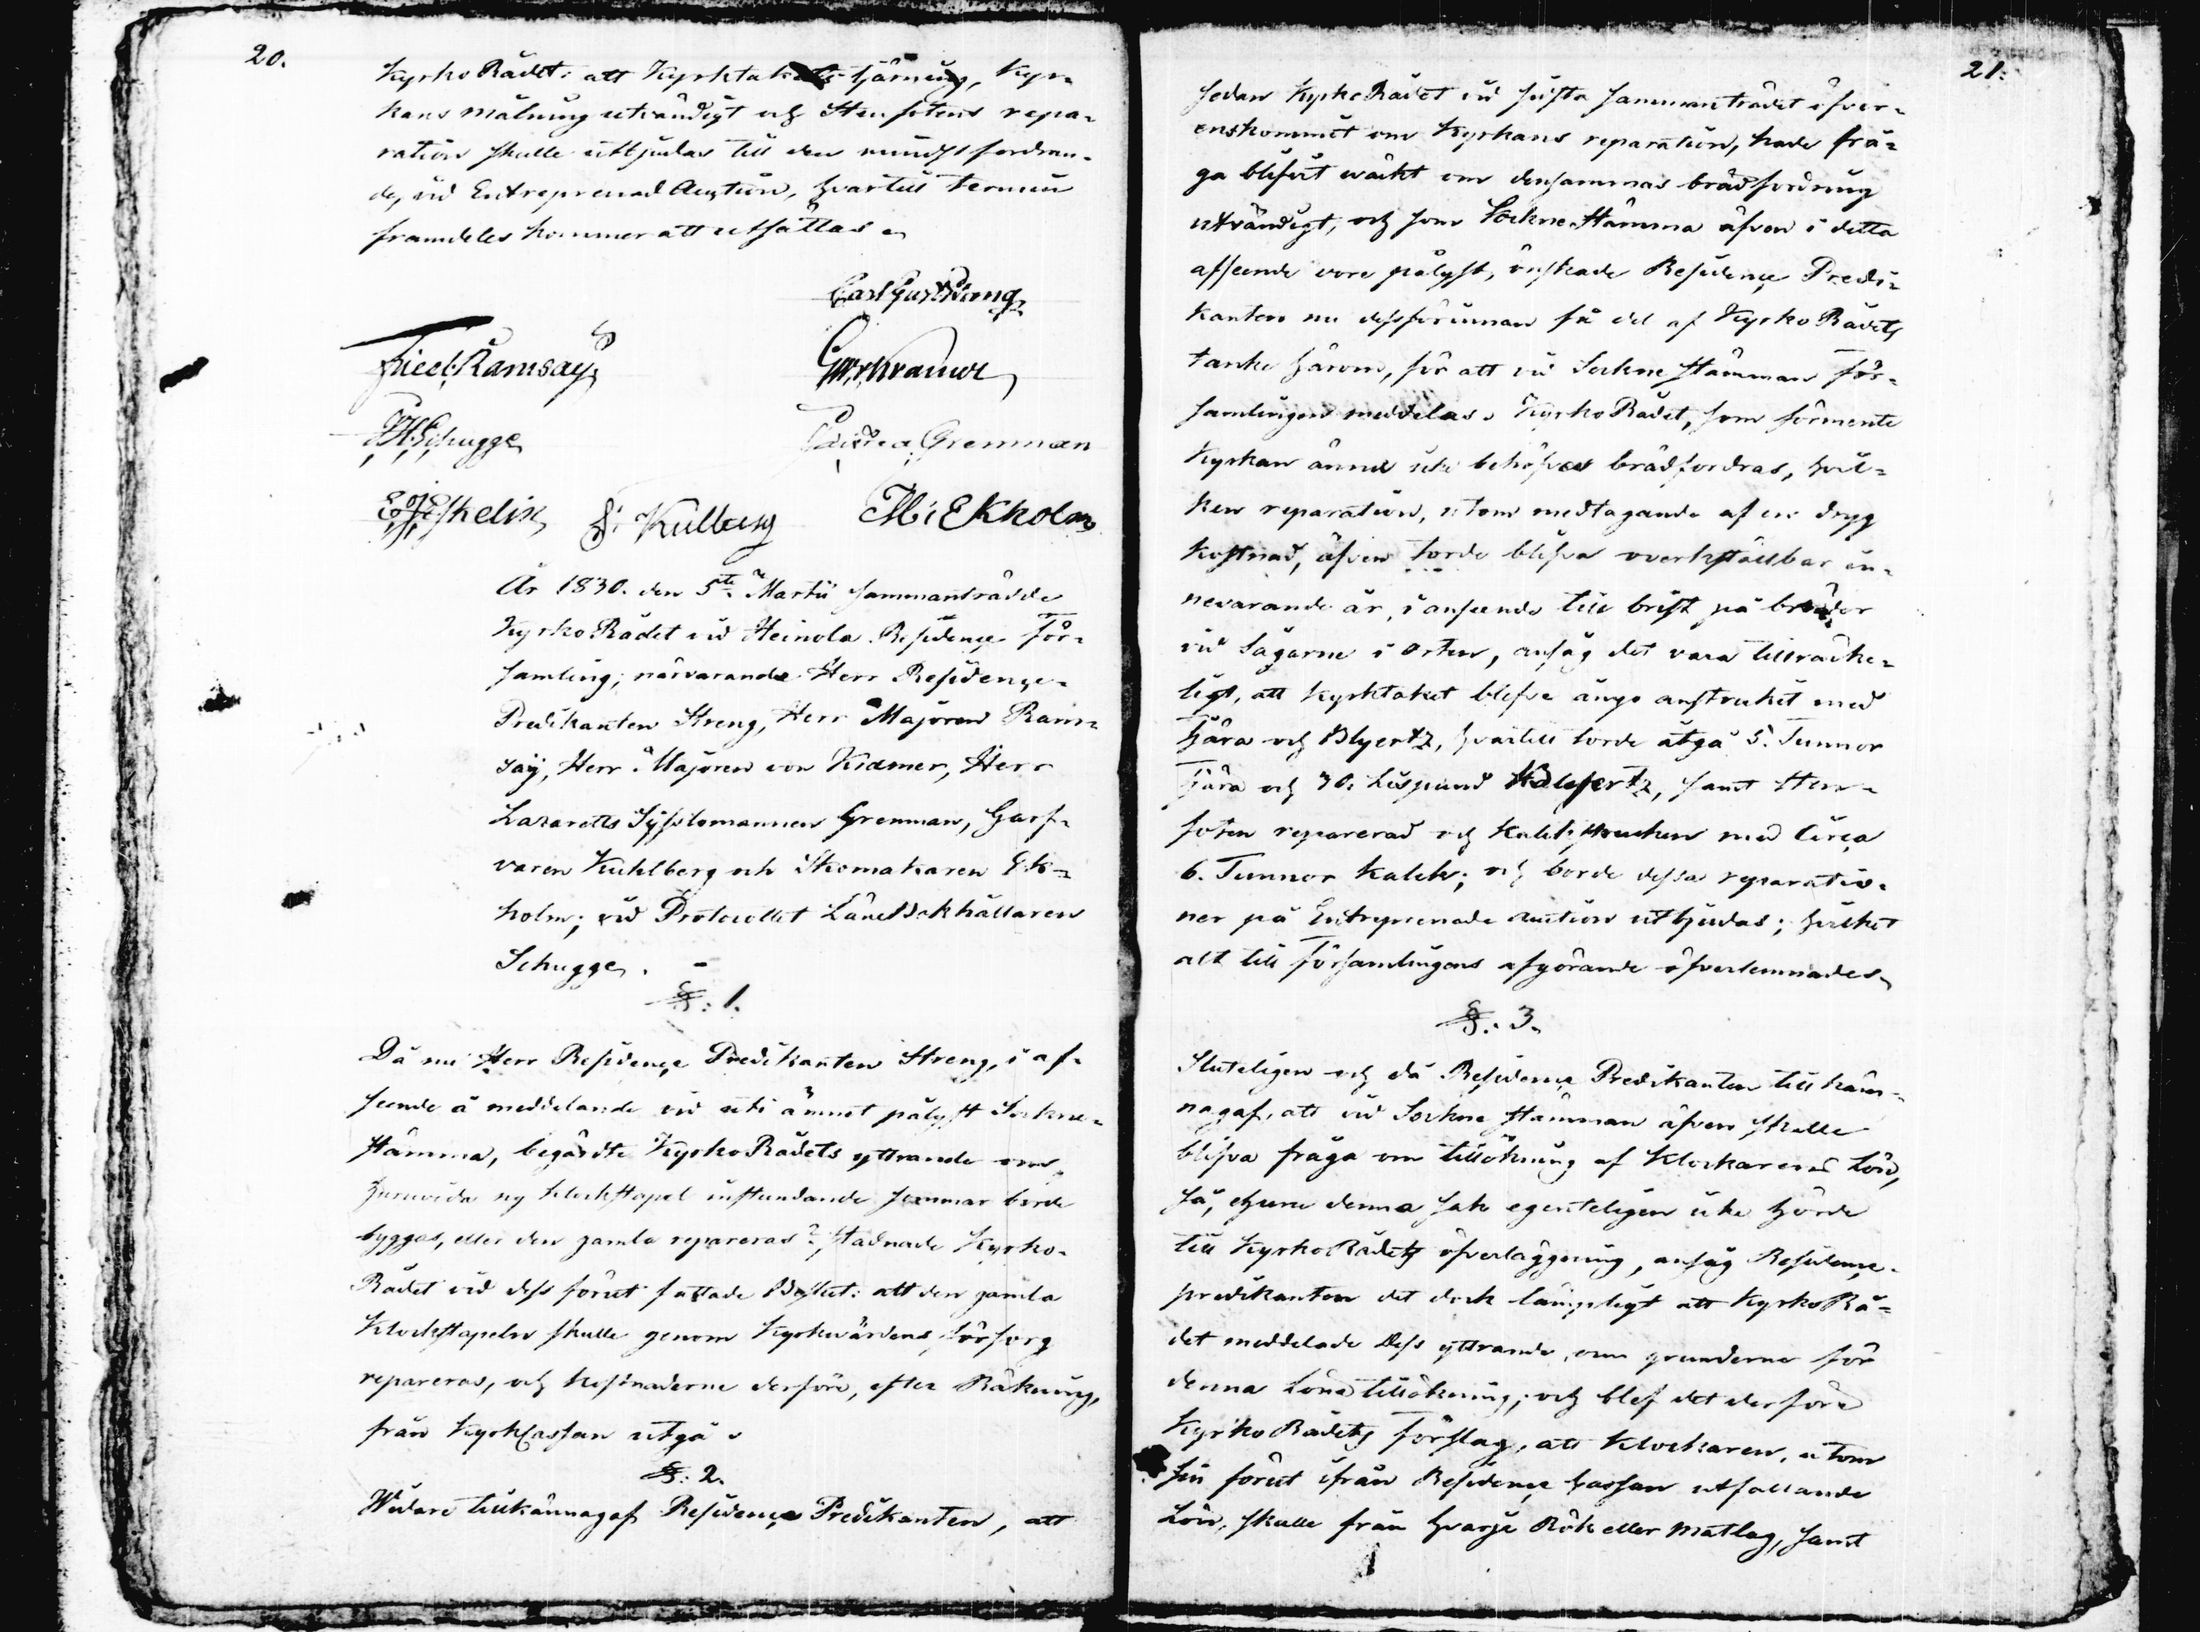 20.
KyrkoRådet: att Kyrktakets tjärning, Kyr=
kans målning utvändigt och Stenfotens repa=
ration skulle utbjudas till den minst fordran=
de, vid Entreprenad Auction, hvartill termin
framdeles kommer att utsättas.
Carl Gust Streng
Fried. Ramsay
von Kræmer
Schugge
Grenman
F: Kulberg
M: Ekholm
År 1830. den 5te Martii sammanträdde
KyrkoRådet vid Heinola Residence För=
samling; närvarande Herr Residence=
Predikanten Streng, Herr Majoren Ram=
say, Herr Majoren von Kræmer, Herr
Lazaretts Sysslomannen Grenman, Garf=
varen Kuhlberg och Skomakaren Ek=
holm; vid Protocollet Länebokhållaren
Schugge.
§: 1.
Då nu Herr Residence Predikanten Streng, i af=
seende å meddelande vid uti ämnet pålyst Sockne=
Stämma, begärdte KyrkoRådets yttrande om,
huruvida ny klockstapel instundande sommar borde
byggas, eller den gamla repareras?, stadnade Kyrko=
Rådet vid dess förut fattade Beslut: att den gamla
Klockstapeln skulle genom Kyrkvärdens försorg
repareras, och kostnaderne derföre, efter Räkning,
från KyrkCassan utgå.
§: 2.
Widare tillkännagaf Residence Predikanten, att
21.
sedan KyrkoRådet vid sista sammanträdet öfver=
enskommit om Kyrkans reparation, hade frå=
ga blifvit väckt om densammas brädfordring
utvändigt, och som Sockne-Stämma äfven i detta
afseende vore pålyst, önskade Residence Predi=
kanten nu dessförinnan få del af KyrkoRådets
tanke härom, för att vid Sockne stämman För=
samlingen meddelas. KyrkoRådet, som förmente
Kyrkan ännu icke behöfva brädfordras, hvil=
ken reparation, utom medtagande af en dryg
kostnad, äfven torde blifva overkställbar in=
nevarande år, i anseende till brist på bräder
vid Sågarne i Orten, ansåg det vara tillräcke=
ligt, att Kyrktaket blefve ånyo anstruket med
Tjära och Blyertz, hvartill torde åtgå 5. Tunnor
Tjära och 30. Lispund, samt Sten=
foten reparerad och Kalkstruken med Circa
6. Tunnor Kalck; och borde dessa reparatio=
ner på Entreprenade auction utbjudas; hvilket
alt till Församlingens afgörande öfverlemnades.
§: 3.
Sluteligen och då Residence Predikanten tillkän=
nagaf, att vid Sockne stämman äfven skulle
blifva fråga om tillökning af Klockarens Lön,
så, ehuru denna sak egenteligen icke hörde
till KyrkoRådets öfverläggning, ansåg Residence=
predikanten det dock lämpligt att KyrkoRå=
det meddelade dess yttrande, om grunderne för
denna Löne tillökning; och blef det derföre
KyrkoRådets Förslag, att Klockaren, utom
sin förut ifrån Residence Cassan utfallande
Lön, skulle från hvarje Rök eller Matlag, samt